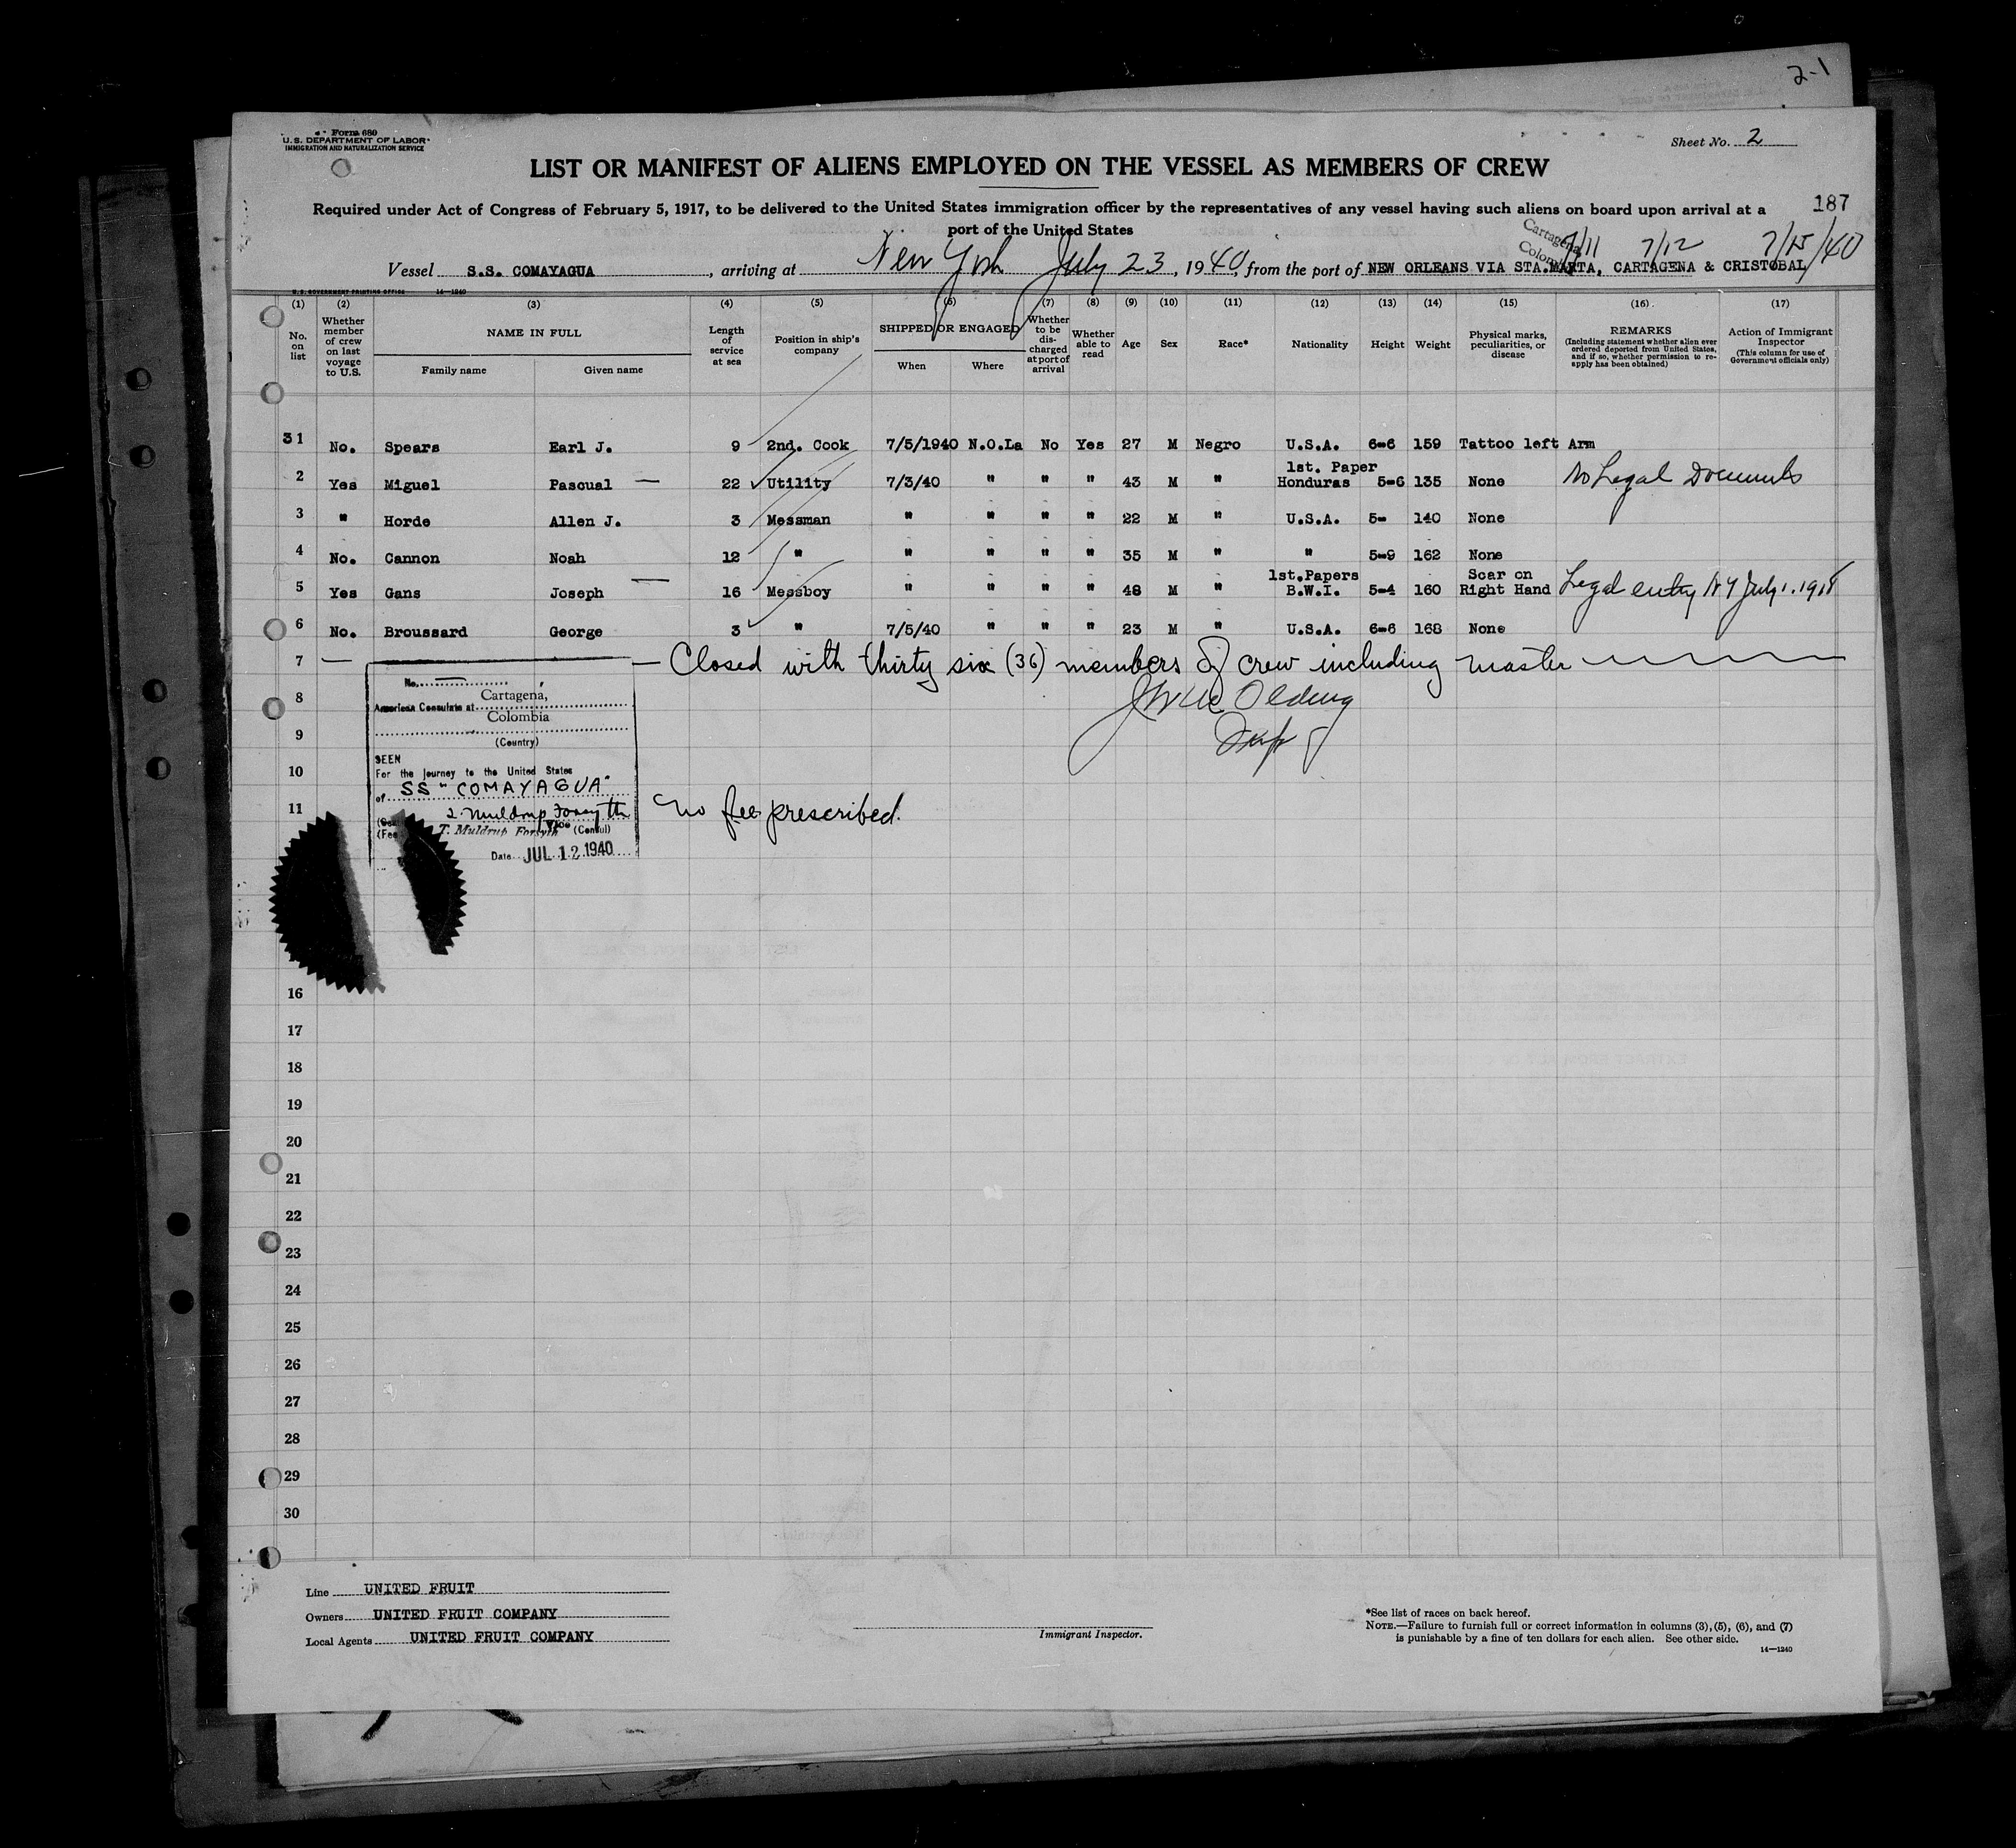 2-1
Form 680
U.S. DEPARTMENT OF LABOR
IMMIGRATION AND NATURALIZATION SERVICE
Sheet No. 2
LIST OR MANIFEST OF ALIENS EMPLOYED ON THE VESSEL AS MEMBERS OF CREW
187
Required under Act of Congress of February 5, 1917, to be delivered to the United States immigration officer by the representatives of any vessel having such aliens on board upon arrival at a
port of the United States
Cartagena
7/11 7/12 7/15/40
Vessel S.S. COMAYAGUA, arriving at New York July 23, 1940, from the port of NEW ORLEANS VIA STA.MARTA, CARTAGENA & CRISTOBAL
U.S. GOVERNMENT PRINTING OFFICE 14-1240
(1) (2) (3) (4) (5) (6) (7) (8) (9) (10) (11) (12) (13) (14) (15) (16) (17)
No. on list
Whether member of crew on last voyage to U.S.
NAME IN FULL
Family name Given name
Length of service at sea
Position in ship's company
SHIPPED OR ENGAGED
When Where
Whether to be discharged at port of arrival
Whether able to read
Age Sex Race* Nationality Height Weight
Physical marks, peculiarities, or disease
REMARKS
(Including statement whether alien ever ordered deported from United States, and if so, whether permission to re-apply has been obtained)
Action of Immigrant Inspector
(This column for use of Government officials only)
31 No. Spears Earl J. 9 2nd. Cook 7/5/1940 N.O.La No Yes 27 M Negro U.S.A. 6-6 159 Tattoo left Arm
1st. Paper
2 Yes Miguel Pascual — 22 Utility 7/3/40 " " " 43 M " Honduras 5-6 135 None No Legal Documents
3 " Horde Allen J. 3 Messman " " " " 22 M " U.S.A. 5- 140 None
4 No. Cannon Noah 12 " " " " " 35 M " " 5-9 162 None
1st.Papers Scar on
5 Yes Gans Joseph — 16 Messboy " " " " 48 M " B.W.I. 5-4 160 Right Hand Legal entry NY July 1. 1918
6 No. Broussard George 3 " 7/5/40 " " " 23 M " U.S.A. 6-6 168 None
7 — Closed with thirty six (36) members of crew including master
8
9
10
11
No.
Cartagena,
American Consulate at
Colombia
(Country)
SEEN
For the journey to the United States
of SS "COMAYAGUA"
T. Muldrup Forsyth
(Fee
T. Muldrup Forsyth Vice (Consul)
Date JUL 12 1940
No fee prescribed.
16
17
18
19
20
21
22
23
24
25
26
27
28
29
30
Line UNITED FRUIT
Owners UNITED FRUIT COMPANY
Local Agents UNITED FRUIT COMPANY
Immigrant Inspector.
*See list of races on back hereof.
NOTE.—Failure to furnish full or correct information in columns (3), (5), (6), and (7)
is punishable by a fine of ten dollars for each alien. See other side.
14—1240